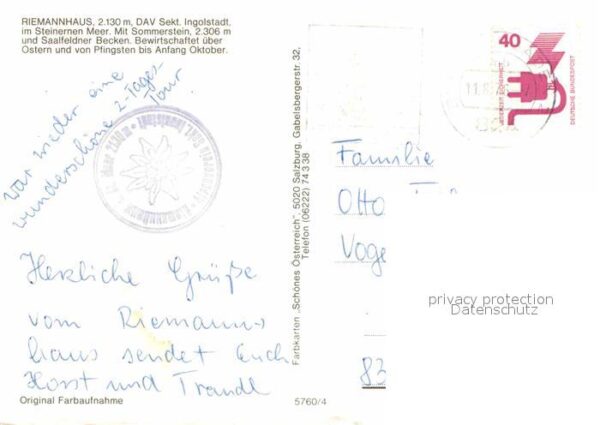 RIEMANNHAUS, 2.130 m, DAV Sekt. Ingolstadt,
im Steinernen Meer. Mit Sommerstein, 2.306 m
und Saalfeldner Becken. Bewirtschaftet über
Ostern und von Pfingsten bis Anfang Oktober.
war wieder eine
wunderschöne 2-Tages-
Tour
Herzliche Grüße
vom Riemanns
haus sendet Euch
Horst und Traudl
Original Farbaufnahme
5760/4
Farbkarten „Schönes Österreich", 5020 Salzburg, Gabelsbergerstr 32,
Telefon (06222) 74 3 38
40
JEDERZEIT SICHERHEIT
DEUTSCHE BUNDESPOST
Familie
Otto
Voge
83
privacy protection
Datenschutz